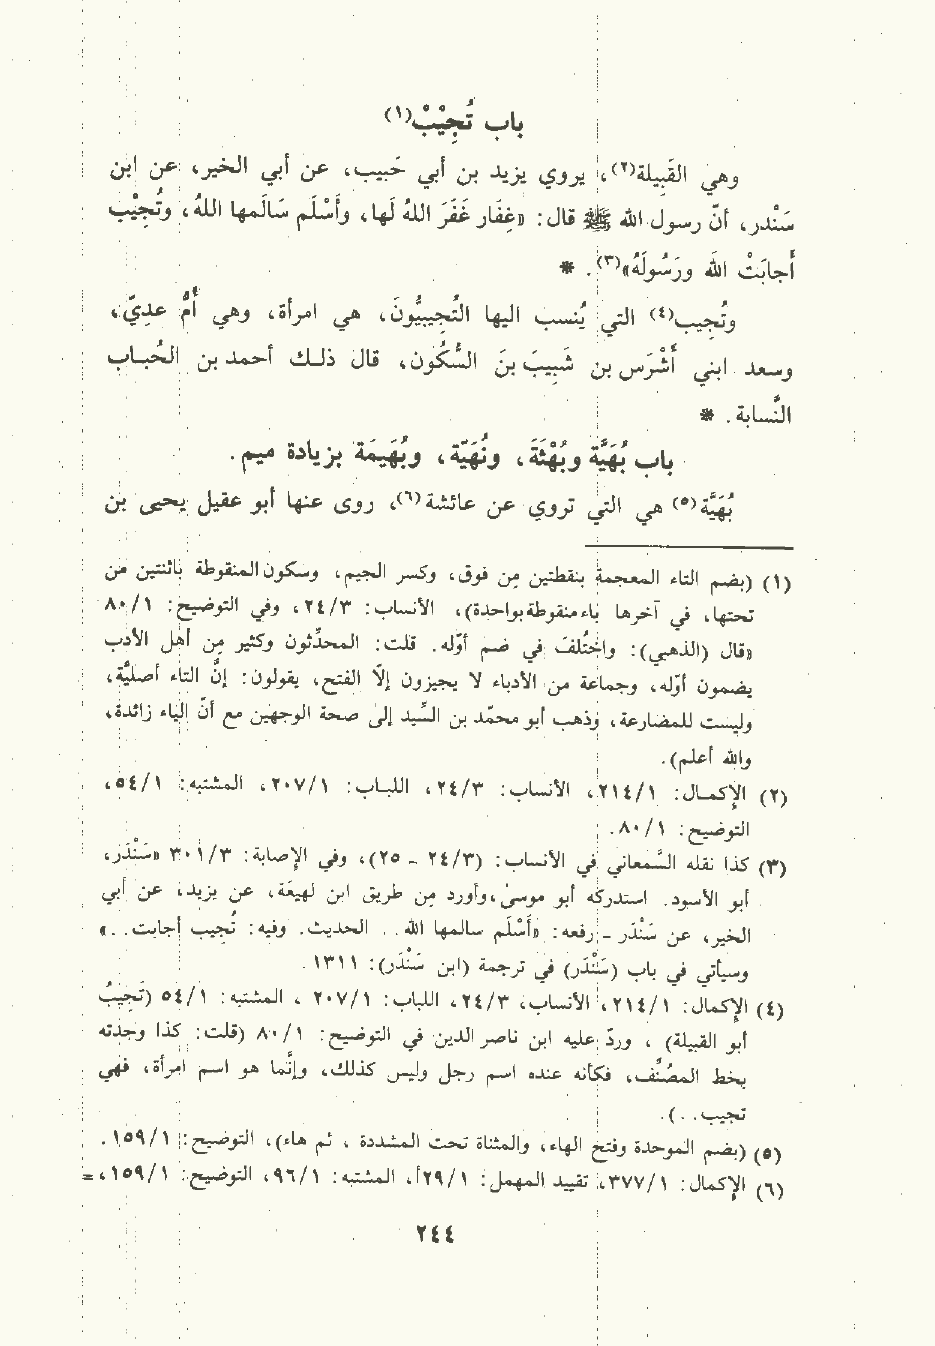 باب تُجِيْبْ(١)
وهي القَبِيلة(٢)، يروي يزيد بن أبي حَبيب، عن أبي الخير، عن ابن
سَنْدر، أنّ رسول الله ﷺ قال: «غِفَار غَفَرَ اللهُ لَها، وأَسْلَم سَالَمها اللهُ، وتُجِيْب
أَجابَتْ الله ورَسُولَهُ»(٣). *
وتُجِيب(٤) التي يُنسب اليها التُجِيبيُّونَ، هي امرأة، وهي أُمُّ عدِيّ،
وسعد ابني أَشْرَس بن شَبِيبَ بنَ السُّكُون، قال ذلك أحمد بن الحُباب
النَّسابة. *
باب بُهَيَّة وبُهْثَةَ، ونُهَيّة، وبُهَيمَة بزيادة ميم.
بُهَيَّة(٥) هي التي تروي عن عائشة(٦)، روى عنها أبو عقيل يحيى بن
(١) (بضم التاء المعجمة بنقطتين مِن فوق، وكسر الجيم، وسكون المنقوطة باثنتين من
تحتها، في آخرها باء منقوطة بواحدة)، الأنساب: ٢٤/٣، وفي التوضيح: ٨٠/١
«قال (الذهبي): واختُلفَ في ضم أوّله. قلت: المحدِّثون وكثير مِن أهل الأدب
يضمون أوّله، وجماعة من الأدباء لا يجيزون إلّا الفتح، يقولون: إنَّ التاء أصليَّة،
وليست للمضارعة، وذهب أبو محمّد بن السِّيد إلى صحة الوجهين مع أنّ الياء زائدة،
والله أعلم).
(٢) الإكمال: ٢١٤/١، الأنساب: ٢٤/٣، اللباب: ٢٠٧/١، المشتبه: ٥٤/١،
التوضيح: ٨٠/١.
(٣) كذا نقله السَّمعاني في الأنساب: (٢٤/٣ - ٢٥)، وفي الإصابة: ٣٠١/٣ «سَنْدَر،
أبو الأسود. استدركه أبو موسىٰ، وأورد مِن طريق ابن لهيعَة، عن يزيد، عن أبي
الخير، عن سَنْدَر - رفعه: «أَسْلَم سالمها الله.. الحديث. وفيه: تُجِيب أجابت..»
وسيأتي في باب (سَنْدَر) في ترجمة (ابن سَنْدَر): ١٣١١.
(٤) الإكمال: ٢١٤/١، الأنساب، ٢٤/٣، اللباب: ٢٠٧/١، المشتبه: ٥٤/١ (تَجِيبُ
أبو القبيلة) ، وردّ عليه ابن ناصر الدين في التوضيح: ٨٠/١ (قلت: كذا وجدته
بخط المصنُف، فكأنه عنده اسم رجل وليس كذلك، وإنَّما هو اسم امرأة، فهي
تجيب..).
(٥) (بضم الموحدة وفتح الهاء، والمثناة تحت المشددة ، ثم هاء)، التوضيح: ١٥٩/١.
(٦) الإكمال: ٣٧٧/١، تقييد المهمل: ٢٩/١أ، المشتبه: ٩٦/١، التوضيح: ١٥٩/١،=
٢٤٤